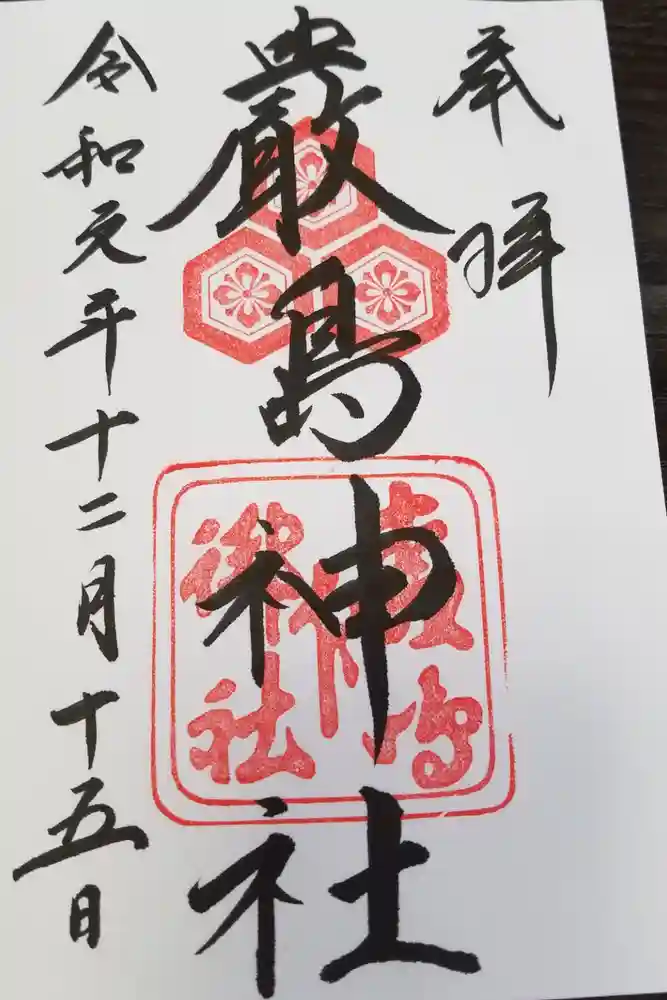 奉拝
嚴島神社
令和元年十二月十五日